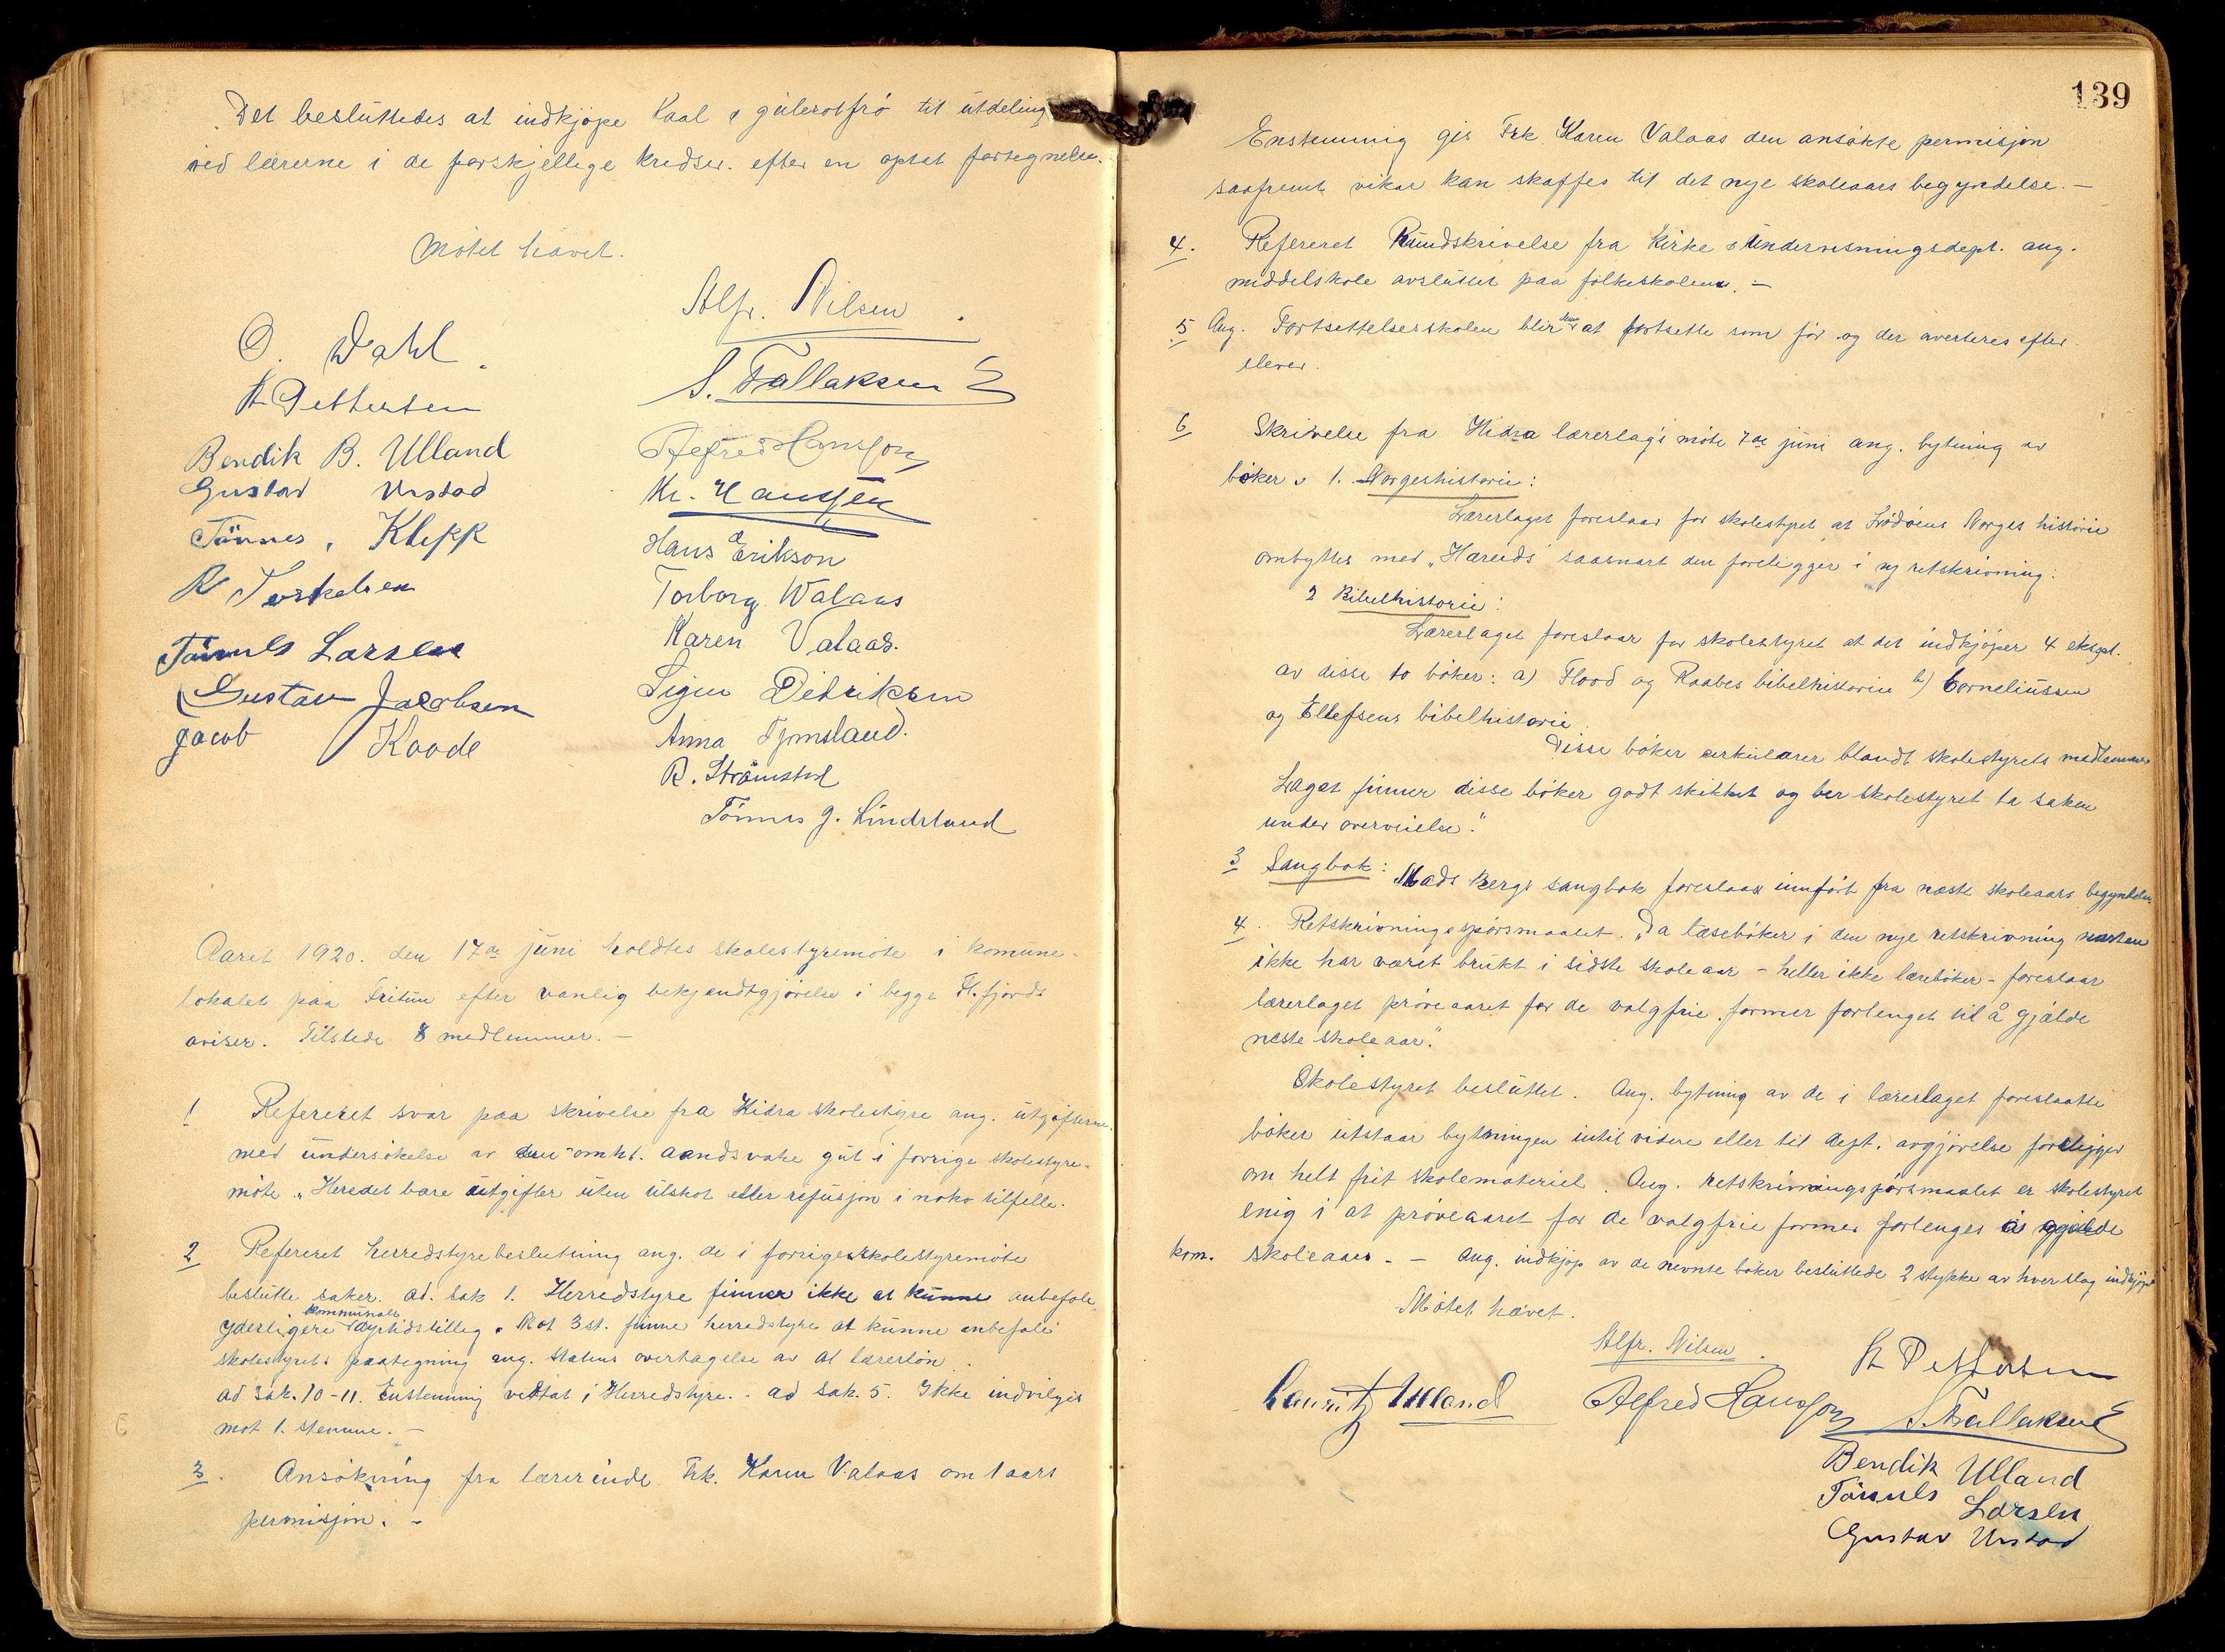 Det besluttedes at indkjøpe Kaal & gulerotfrö til utdeling
ved lærerne i de forskjellige Kredser. efter en optat fortegnelse.
Mötet hævet.
Alfr. Nilsen
O. Dahl.
S. Tallaksen
A Pettersen
Alfred Hansson
Bendik B. Ulland
Kr. Hanssen
Gustav Urstad
Hans Erikson
Tönnes, Klepp
Torborg Walaas
R Terkelsen
Karen Valaas.
Tönnes Larsen
Signe Didriksen
Gustav Jacobsen
Anna Tjomsland.
Jacob Koode
R. Strömstad
Tönnes J. Lindeland
Aaret 1920. den 17de juni holdtes skolestyremöte i komune-
lokalet paa Fritun efter vanlig bekjendtgjörelse i begge Fl.fjords
aviser. Tilstede 8 medlemmer. —
1 Refereret svar paa skrivelse fra Hidra skolestyre ang. utgifterne
med undersökelse av den omht. aandsvake gut i forrige skolestyre-
möte. „Heredet bære utgifter uten tilskot eller refusjon i noko tilfelle.
2 Refereret herredstyrebeslutning ang. de i forrige skolestyremöte
beslutte saker. ad. sak 1. Herredstyre finner ikke at kunne anbefale
yderligere kommunale dyrtidstillæg. Mot 3 st. finne herredstyre at kunne anbefale
skolestyrets paategning ang. statens overtagelse av al lærerlön.
ad sak. 10-11. Enstemmig vedtat i Herredstyre. - ad sak. 5. Ikke indvilges
mot 1. stemme. —
3. Ansökning fra lærerinde Frk. Karen Valaas om 1 aars
permisjon. -
139
Enstemmig gis Frk. Karen Valaas den ansökte permisjon
saafremt vikar kan skaffes til det nye skoleaars begyndelse. —
4. Refereret Rundskrivelse fra Kirke & Undervisningsdept. ang.
middelskole avsluttet paa folkeskolen. —
5 Ang. Fortsettelsesskolen blir at fortsette som för og der averteres efter
elever.
6 Skrivelse fra Hidra lærerlags möte 7de juni ang. bytning av
böker. 1. Norgeshistorie:
Lærerlaget foreslaar for skolestyret at Nordöens Norges historie
ombyttes med „Hæreids" saasnart den foreligger i ny retskrivning:
2 Bibelhistorie:
Lærerlaget foreslaar for skolestyret at det indkjöper 4 ekspl.
av disse to böker: a) Flood og Raabes bibelhistorie b) Corneliussen
og Ellefsens bibelhistorie.
Disse böker cirkulerer blandt skolestyrets medlemmer
Laget finner disse böker godt skikket og ber skolestyret ta saken
under overveielse."
3 Sangbok: Mads Bergs sangbok foreslaas innfört fra næste skoleaars begyndelse
4. Retskrivningsspörsmaalet. „Da læseböker i den nye retskrivning næsten
ikke har været brukt i sidste skoleaar - heller ikke læreböker - foreslaar
lærerlaget pröveaaret for de valgfrie former forlenget til å gjælde
næste skoleaar."
Skolestyret besluttet. Ang. bytning av de i lærerlaget foreslaatte
böker utstaar bytningen intil videre eller til dept. avgjörelse foreligger
om helt frit skolemateriel. Ang. retskrivningspörsmaalet er skolestyret
enig i at pröveaaret for de valgfrie former forlenges å gjælde
kom. skoleaar. - — Ang. indkjøp av de nevnte böker besluttede 2 stykke av hver slag indkjøpt
Mötet hævet.
Alfr. Nilsen.
A Pettersen
Lauritz Ulland
Alfred Hansson
S. Tallaksen
Bendik Ulland
Tönnes Larsen
Gustav Urstad